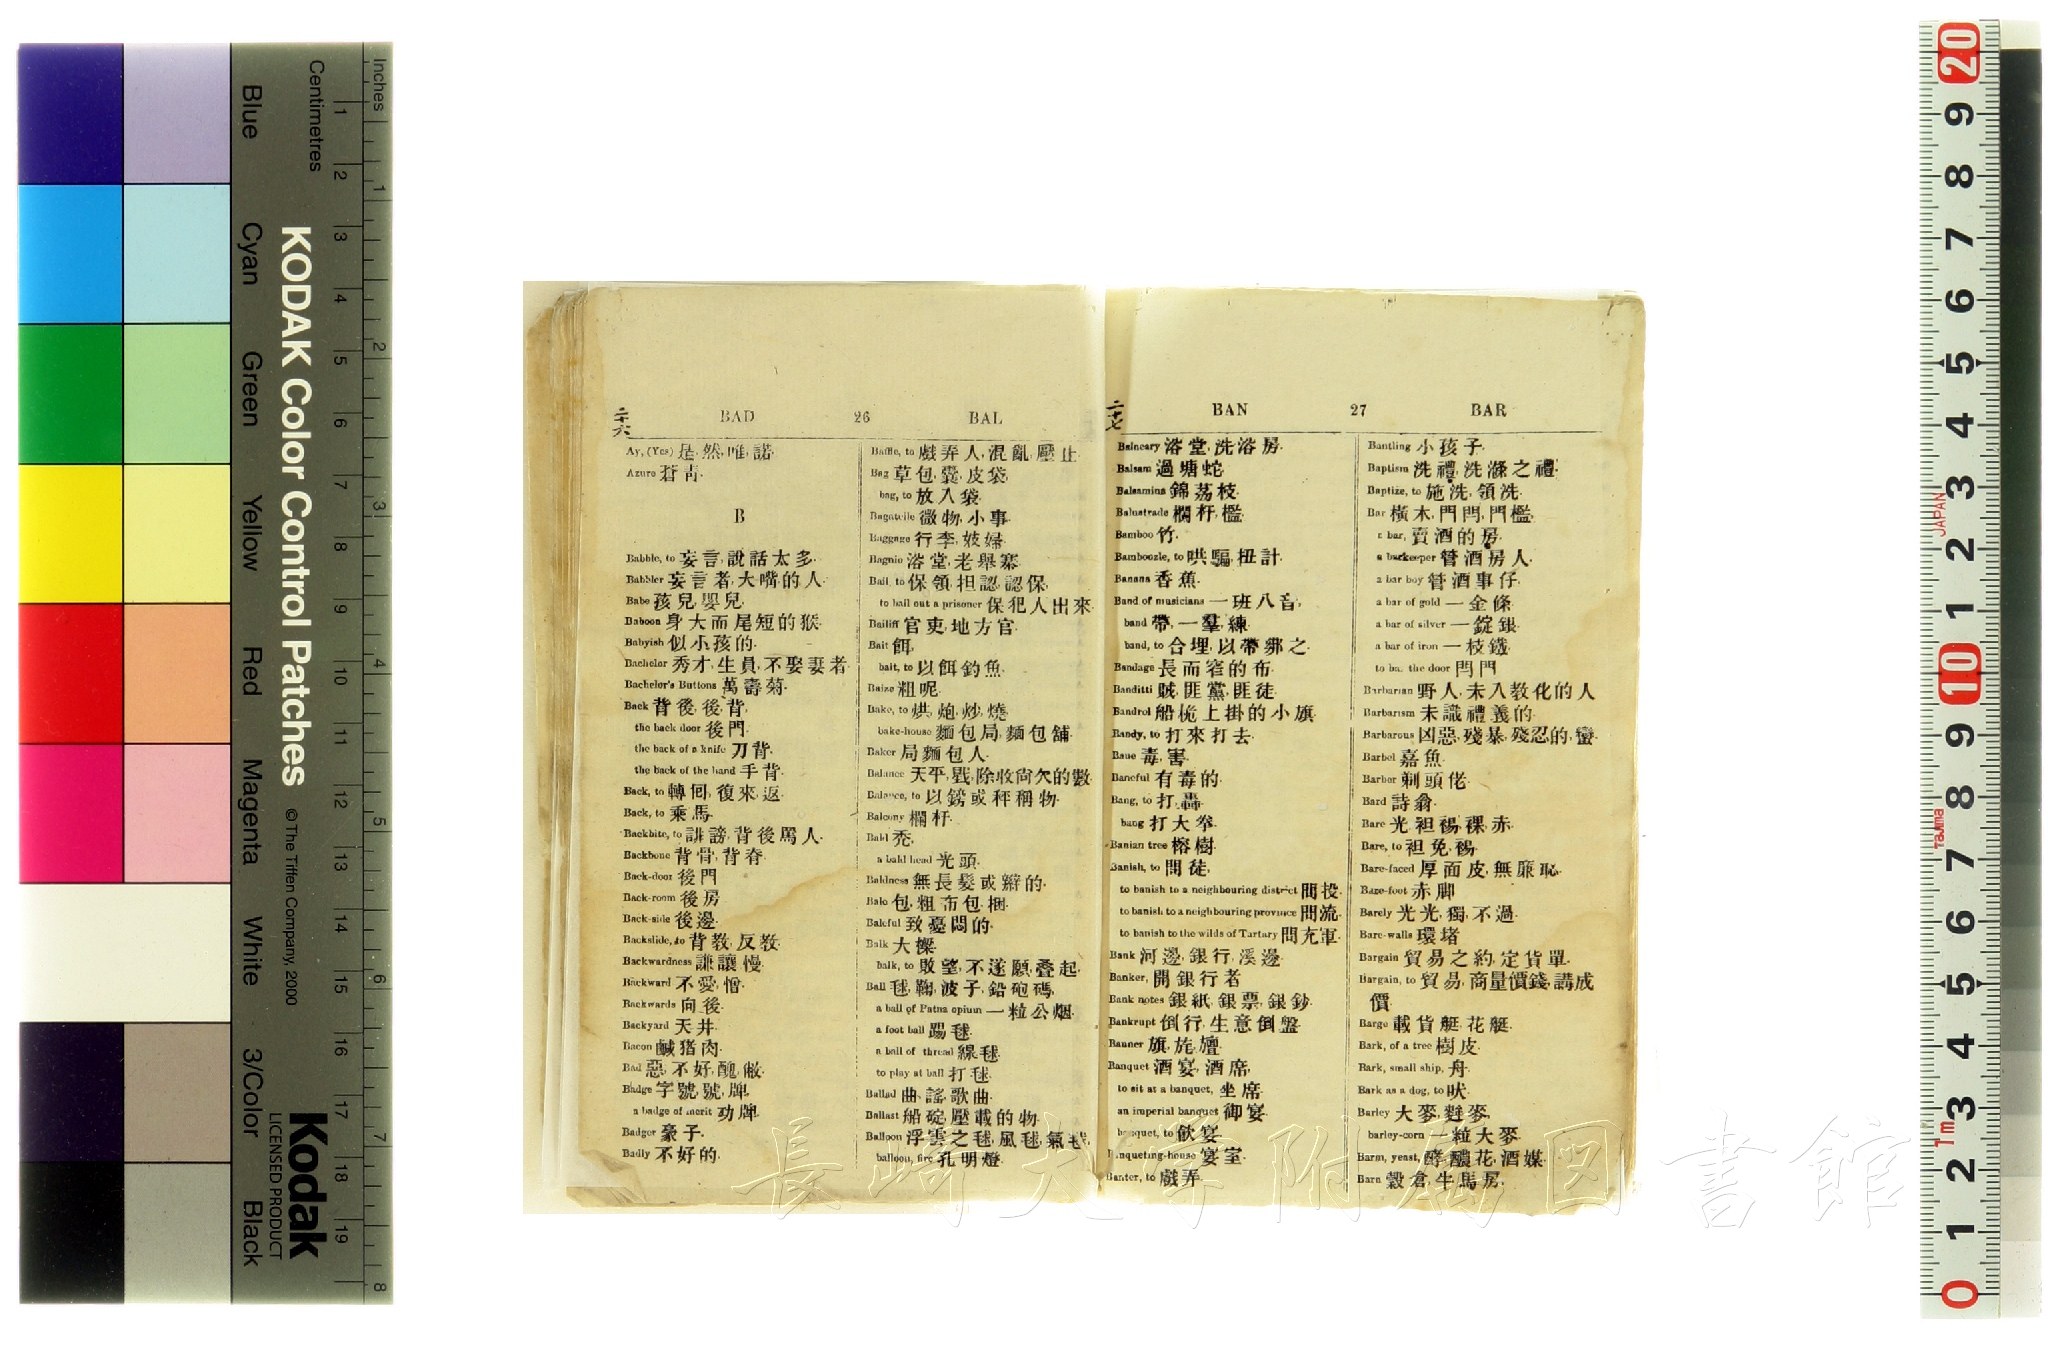 二十六 BAD 26 BAL
Ay, (Yes) 是, 然, 唯, 諾.
Azure 蒼靑.
B
Babble, to 妄言, 說話太多.
Babbler 妄言者, 大嘴的人.
Babe 孩兒, 嬰兒.
Baboon 身大而尾短的猴.
Babyish 似小孩的.
Bachelor 秀才, 生員, 不娶妻者.
Bachelor's Buttons 萬壽菊.
Back 背後, 後, 背.
the back door 後門.
the back of a knife 刀背.
the back of the hand 手背.
Back, to 轉囘, 復來, 返.
Back, to 乘馬.
Backbite, to 誹謗, 背後罵人.
Backbone 背骨, 背脊.
Back-door 後門
Back-room 後房
Back-side 後邊.
Backslide, to 背敎, 反敎.
Backwardness 謙讓, 慢.
Backward 不愛, 憎.
Backwards 向後.
Backyard 天井.
Bacon 鹹猪肉.
Bad 惡, 不好, 醜, 敝.
Badge 字號, 號, 牌.
a badge of merit 功牌.
Badger 豪子.
Badly 不好的.
Baffle, to 戲弄人, 混亂, 壓止.
Bag 草包, 囊, 皮袋.
bag, to 放入袋.
Bagatelle 微物, 小事.
Baggage 行李, 妓婦.
Bagnio 浴堂, 老舉寨.
Bail, to 保領, 担認, 認保.
to bail out a prisoner 保犯人出來.
Bailiff 官吏, 地方官.
Bait 餌,
bait, to 以餌釣魚.
Baize 粗呢.
Bake, to 烘, 炮, 炒, 燒.
bake-house 麵包局, 麵包舖.
Baker 局麵包人.
Balance 天平, 戥, 除收尙欠的數.
Balance, to 以鎊或秤稱物.
Balcony 欄杆.
Bald 禿,
a bald head 光頭.
Baldness 無長髮或辮的.
Bale 包, 粗布包, 捆.
Baleful 致憂悶的.
Balk 大樑.
balk, to 敗望, 不遂願, 叠起.
Ball 毬, 鞠, 波子, 鉛砲碼.
a ball of Patna opium 一粒公烟.
a foot ball 踢毬.
a ball of thread 線毬.
to play at ball 打毬.
Ballad 曲, 謠, 歌曲.
Ballast 船碇, 壓載的物.
Balloon 浮雲之毬, 風毬, 氣毬.
balloon, fire 孔明燈.
二十七 BAN 27 BAR
Balneary 浴堂, 洗浴房.
Balsam 過塘蛇.
Balsamina 錦荔枝.
Balustrade 欄杆, 檻.
Bamboo 竹.
Bamboozle, to 哄騙, 扭計.
Banana 香蕉.
Band of musicians 一班八音,
band 帶, 一羣, 練.
band, to 合埋, 以帶綁之.
Bandage 長而窄的布.
Banditti 賊, 匪黨, 匪徒.
Bandrol 船桅上掛的小旗.
Bandy, to 打來打去.
Bane 毒, 害.
Baneful 有毒的.
Bang, to 打, 轟.
bang 打大拳.
Banian tree 榕樹.
Banish, to 問徒,
to banish to a neighbouring district 問投.
to banish to a neighbouring province 問流.
to banish to the wilds of Tartary 問充軍.
Bank 河邊, 銀行, 溪邊.
Banker, 開銀行者
Bank notes 銀紙, 銀票, 銀鈔.
Bankrupt 倒行, 生意倒盤.
Banner 旗, 旄, 旜.
Banquet 酒宴, 酒席,
to sit at a banquet, 坐席.
an imperial banquet 御宴.
banquet, to 飮宴.
Banqueting-house 宴室.
Banter, to 戲弄.
Bantling 小孩子.
Baptism 洗禮, 洗滌之禮.
Baptize, to 施洗, 領洗.
Bar 橫木, 門閂, 門檻.
a bar, 賣酒的房.
a barkeeper 管酒房人.
a bar boy 管酒事仔.
a bar of gold 一金條.
a bar of silver 一錠銀.
a bar of iron 一枝鐵.
to bar the door 閂門
Barbarian 野人, 未入敎化的人
Barbarism 未識禮義的.
Barbarous 凶惡, 殘暴, 殘忍的, 蠻.
Barbel 嘉魚.
Barber 剃頭佬.
Bard 詩翁.
Bare 光, 袒裼, 裸, 赤.
Bare, to 袒, 免, 裼.
Bare-faced 厚面皮, 無廉恥.
Bare-foot 赤脚
Barely 光光, 獨, 不過.
Bare-walls 環堵
Bargain 貿易之約, 定貨單.
Bargain, to 貿易, 商量價錢, 講成
價.
Barge 載貨艇, 花艇.
Bark, of a tree 樹皮.
Bark, small ship, 舟.
Bark as a dog, to 吠.
Barley 大麥, 麰麥.
barley-corn 一粒大麥.
Barm, yeast, 酵, 醲花, 酒媒.
Barn 穀倉, 牛馬房.
長崎大学附属図書館
Blue Cyan Green Yellow Red Magenta White 3/Color Black
KODAK Color Control Patches © The Tiffen Company, 2000
Kodak
LICENSED PRODUCT
Centimetres 1 2 3 4 5 6 7 8 9 10 11 12 13 14 15 16 17 18 19
Inches 1 2 3 4 5 6 7 8
20 9 8 7 6 5 4 3 2 1 10 9 8 7 6 5 4 3 2 1 0
JAPAN
Tajima
1m